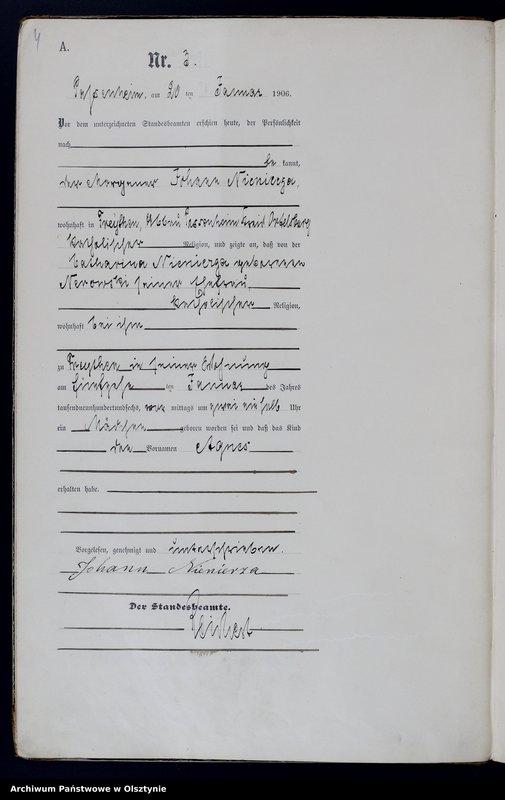 4
A.
Nr. 3.
Passenheim, am 20 ten Januar 1906.
Vor dem unterzeichneten Standesbeamten erschien heute, der Persönlichkeit
nach
be kannt,
der Johann Nienierza,
wohnhaft in Freythen, Abbau Passenheim Kreis Ortelsburg
katholischer Religion, und zeigte an, daß von der
Catharina Nienierza geborenen
seiner Ehefrau,
katholischer Religion,
wohnhaft bei ihm
zu Freythen in seiner Wohnung
am ten Januar des Jahres
tausendneunhundertundsechs, vor mittags um zwei ein halb Uhr
ein Mädchen geboren worden sei und daß das Kind
den Vornamen Agnes
erhalten habe.
Vorgelesen, genehmigt und unterschrieben.
Johann Nienierza
Der Standesbeamte.
Archiwum Państwowe w Olsztynie